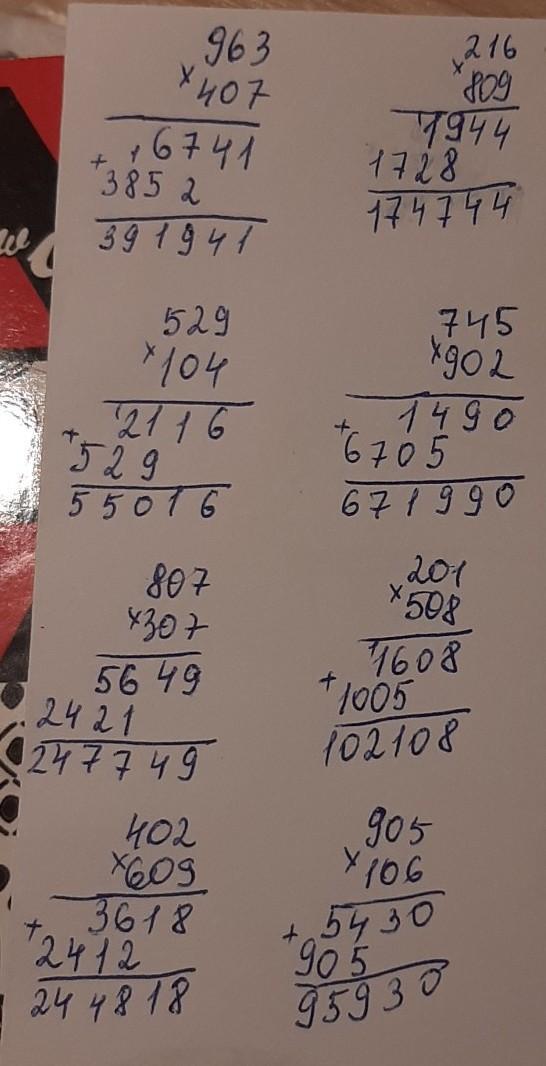 963
×407
+ 16741
3852
391941
216
×809
1944
1728
174744
529
×104
+ 2116
529
55016
745
×902
+ 1490
6705
671990
807
×307
5649
2421
247749
201
×508
+ 1608
1005
102108
402
×609
+ 3618
2412
244818
905
×106
+ 5430
905
95930